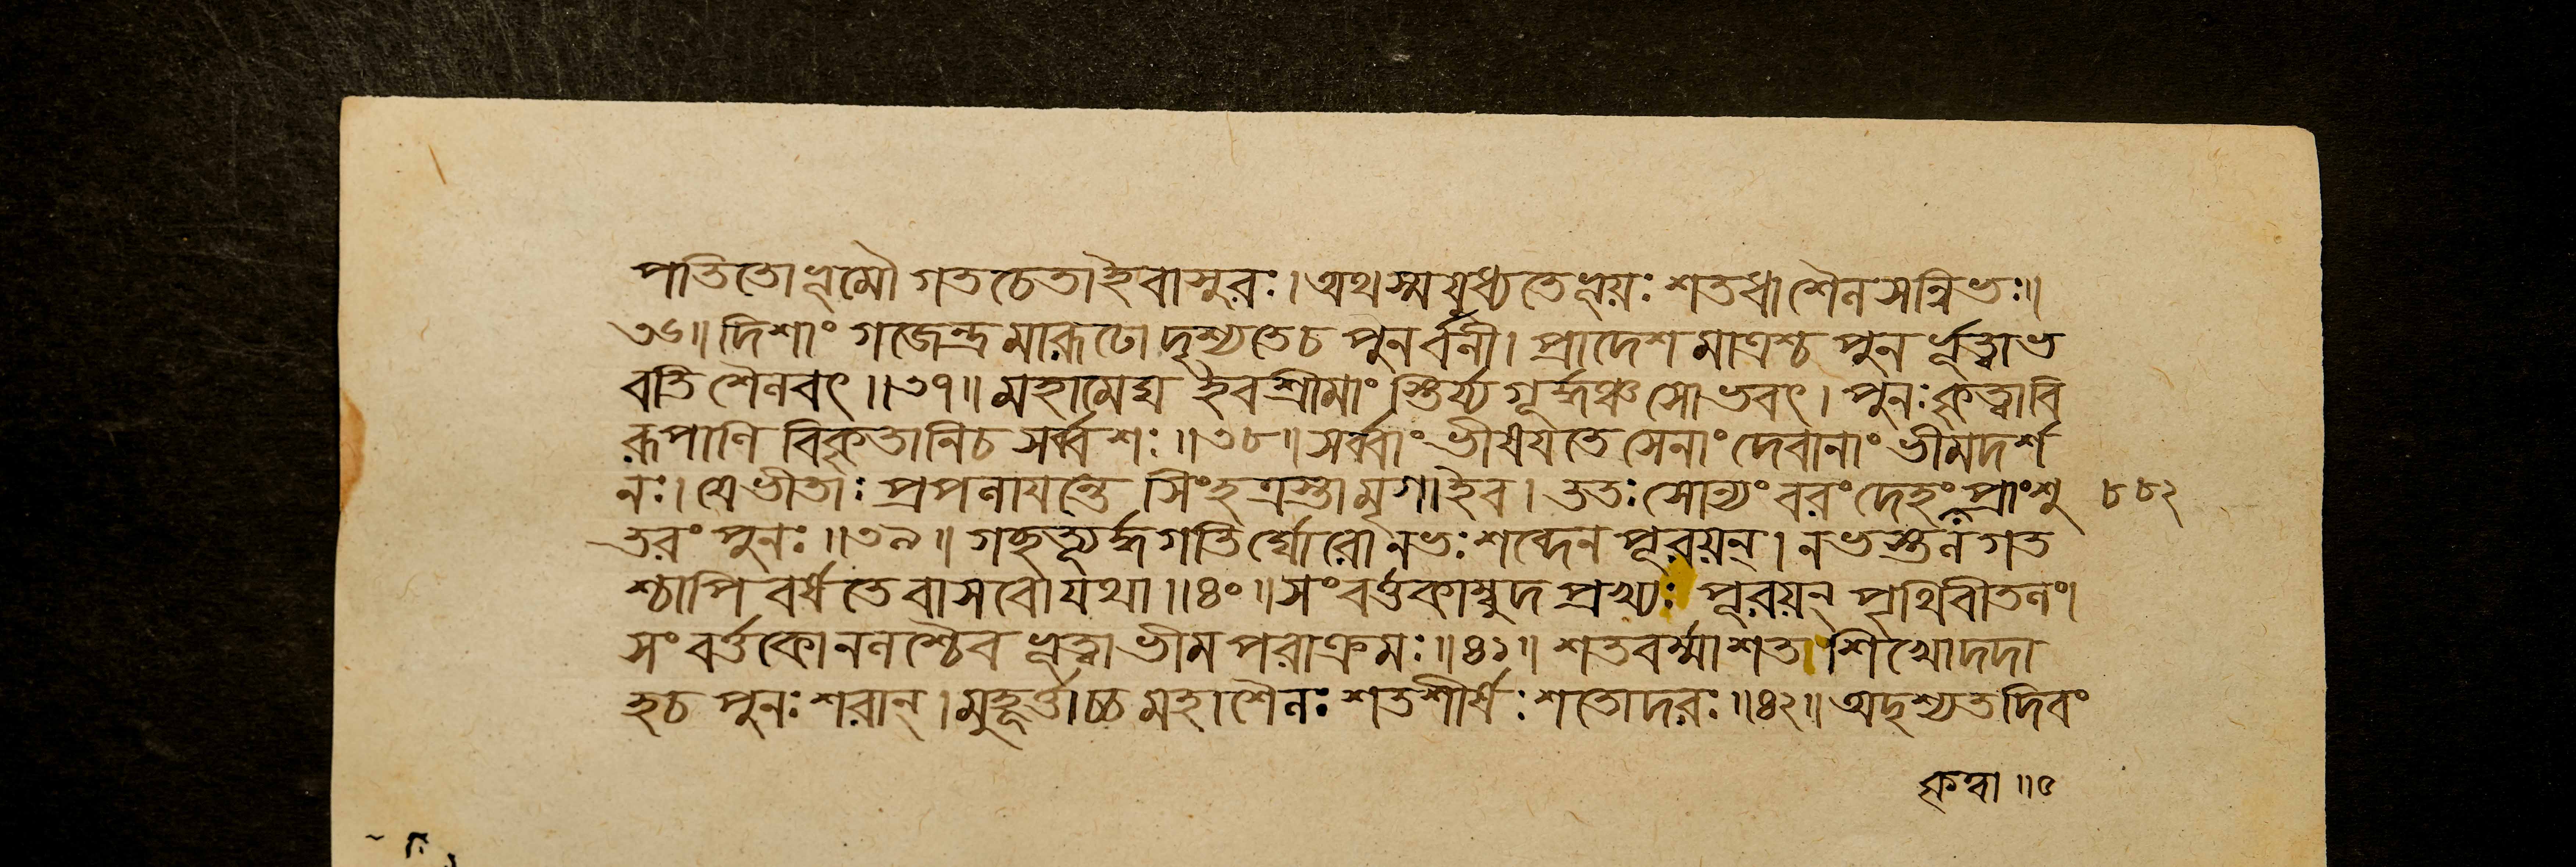 পতিতোভূমৌ গতচেতাইবাসুরঃ। অথস্ময়ুধ্যতেভূয়ঃ শতধাশৈলসন্নিভঃ॥
৩৬॥ দিশাং গজেন্দ্রমারূঢো দৃশ্যতেচ পুনর্বলী। প্রাদেশমাত্রশ্চ পুনর্ভূত্বাভ
বতি শৈলবৎ॥৩৭॥ মহামেঘ ইবশ্রীমাংস্তির্য্যগূর্দ্ধঞ্চসোভবৎ। পুনঃকৃত্বাবি
রূপাণি বিকৃতানিচ সর্ব্বশঃ॥৩৮॥ সর্ব্বাংভীষয়তে সেনাং দেবানাং ভীমদর্শ
নঃ। যেভীতাঃ প্রপলায়ন্তে সিংহত্রস্তামৃগাইব। ততঃসোন্যংবরংদেহং প্রাংশু ৮৮২
তরং পুনঃ॥৩৯॥ গচ্ছত্যূর্দ্ধগতির্ঘোরোনভঃশব্দেন পূরয়ন্। নভস্তলংগত
শ্চাপি বর্ষতে বাসবোযথা॥৪০॥ সংবর্ত্তকাম্বুদপ্রখ্যঃ পূরয়ন্ পৃথিবীতলং।
সংবর্ত্তকোনলশ্চৈব ভূত্বাভীমপরাক্রমঃ॥৪১॥ শতবর্ত্মাশতশিখোদদা
হচ পুনঃশরান্। মুহূর্ত্তাচ্চ মহাশৈলঃ শতশীর্ষঃ শতোদরঃ॥৪২॥ অদৃশ্যতদিবং
কৃত্বা॥৫